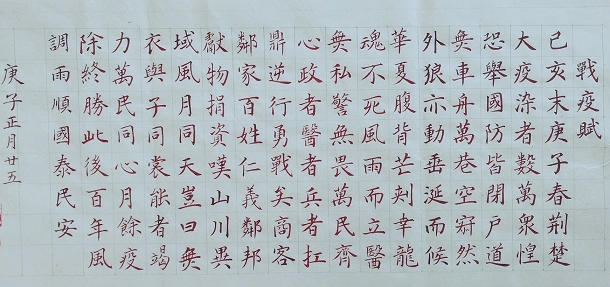 戰疫賦
己亥末庚子春荆楚
大疫染者數萬衆惶
恐舉國防皆閉戶道
無車舟萬巷空寂然
外狼亦動垂涎而候
華夏腹背芒刺幸龍
魂不死風雨而立醫
無私警無畏萬民齊
心政者醫者兵者扛
鼎逆行勇戰矣商客
鄰家百姓仁義鄰邦
獻物捐資嘆山川異
域風月同天豈曰無
衣與子同裳能者竭
力萬民同心月餘疫
除終勝此後百年風
調雨順國泰民安
庚子正月廿五